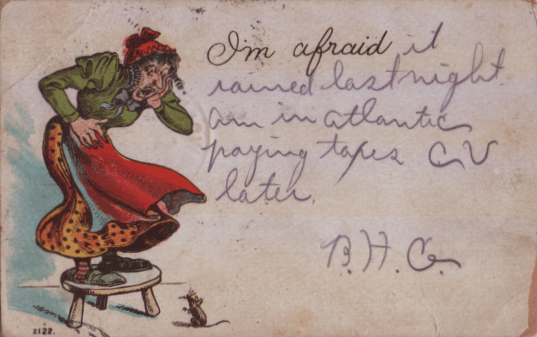 I'm afraid it
rained last night.
am in atlantic
paying taxes C U
later.
B. H. G.
8122.